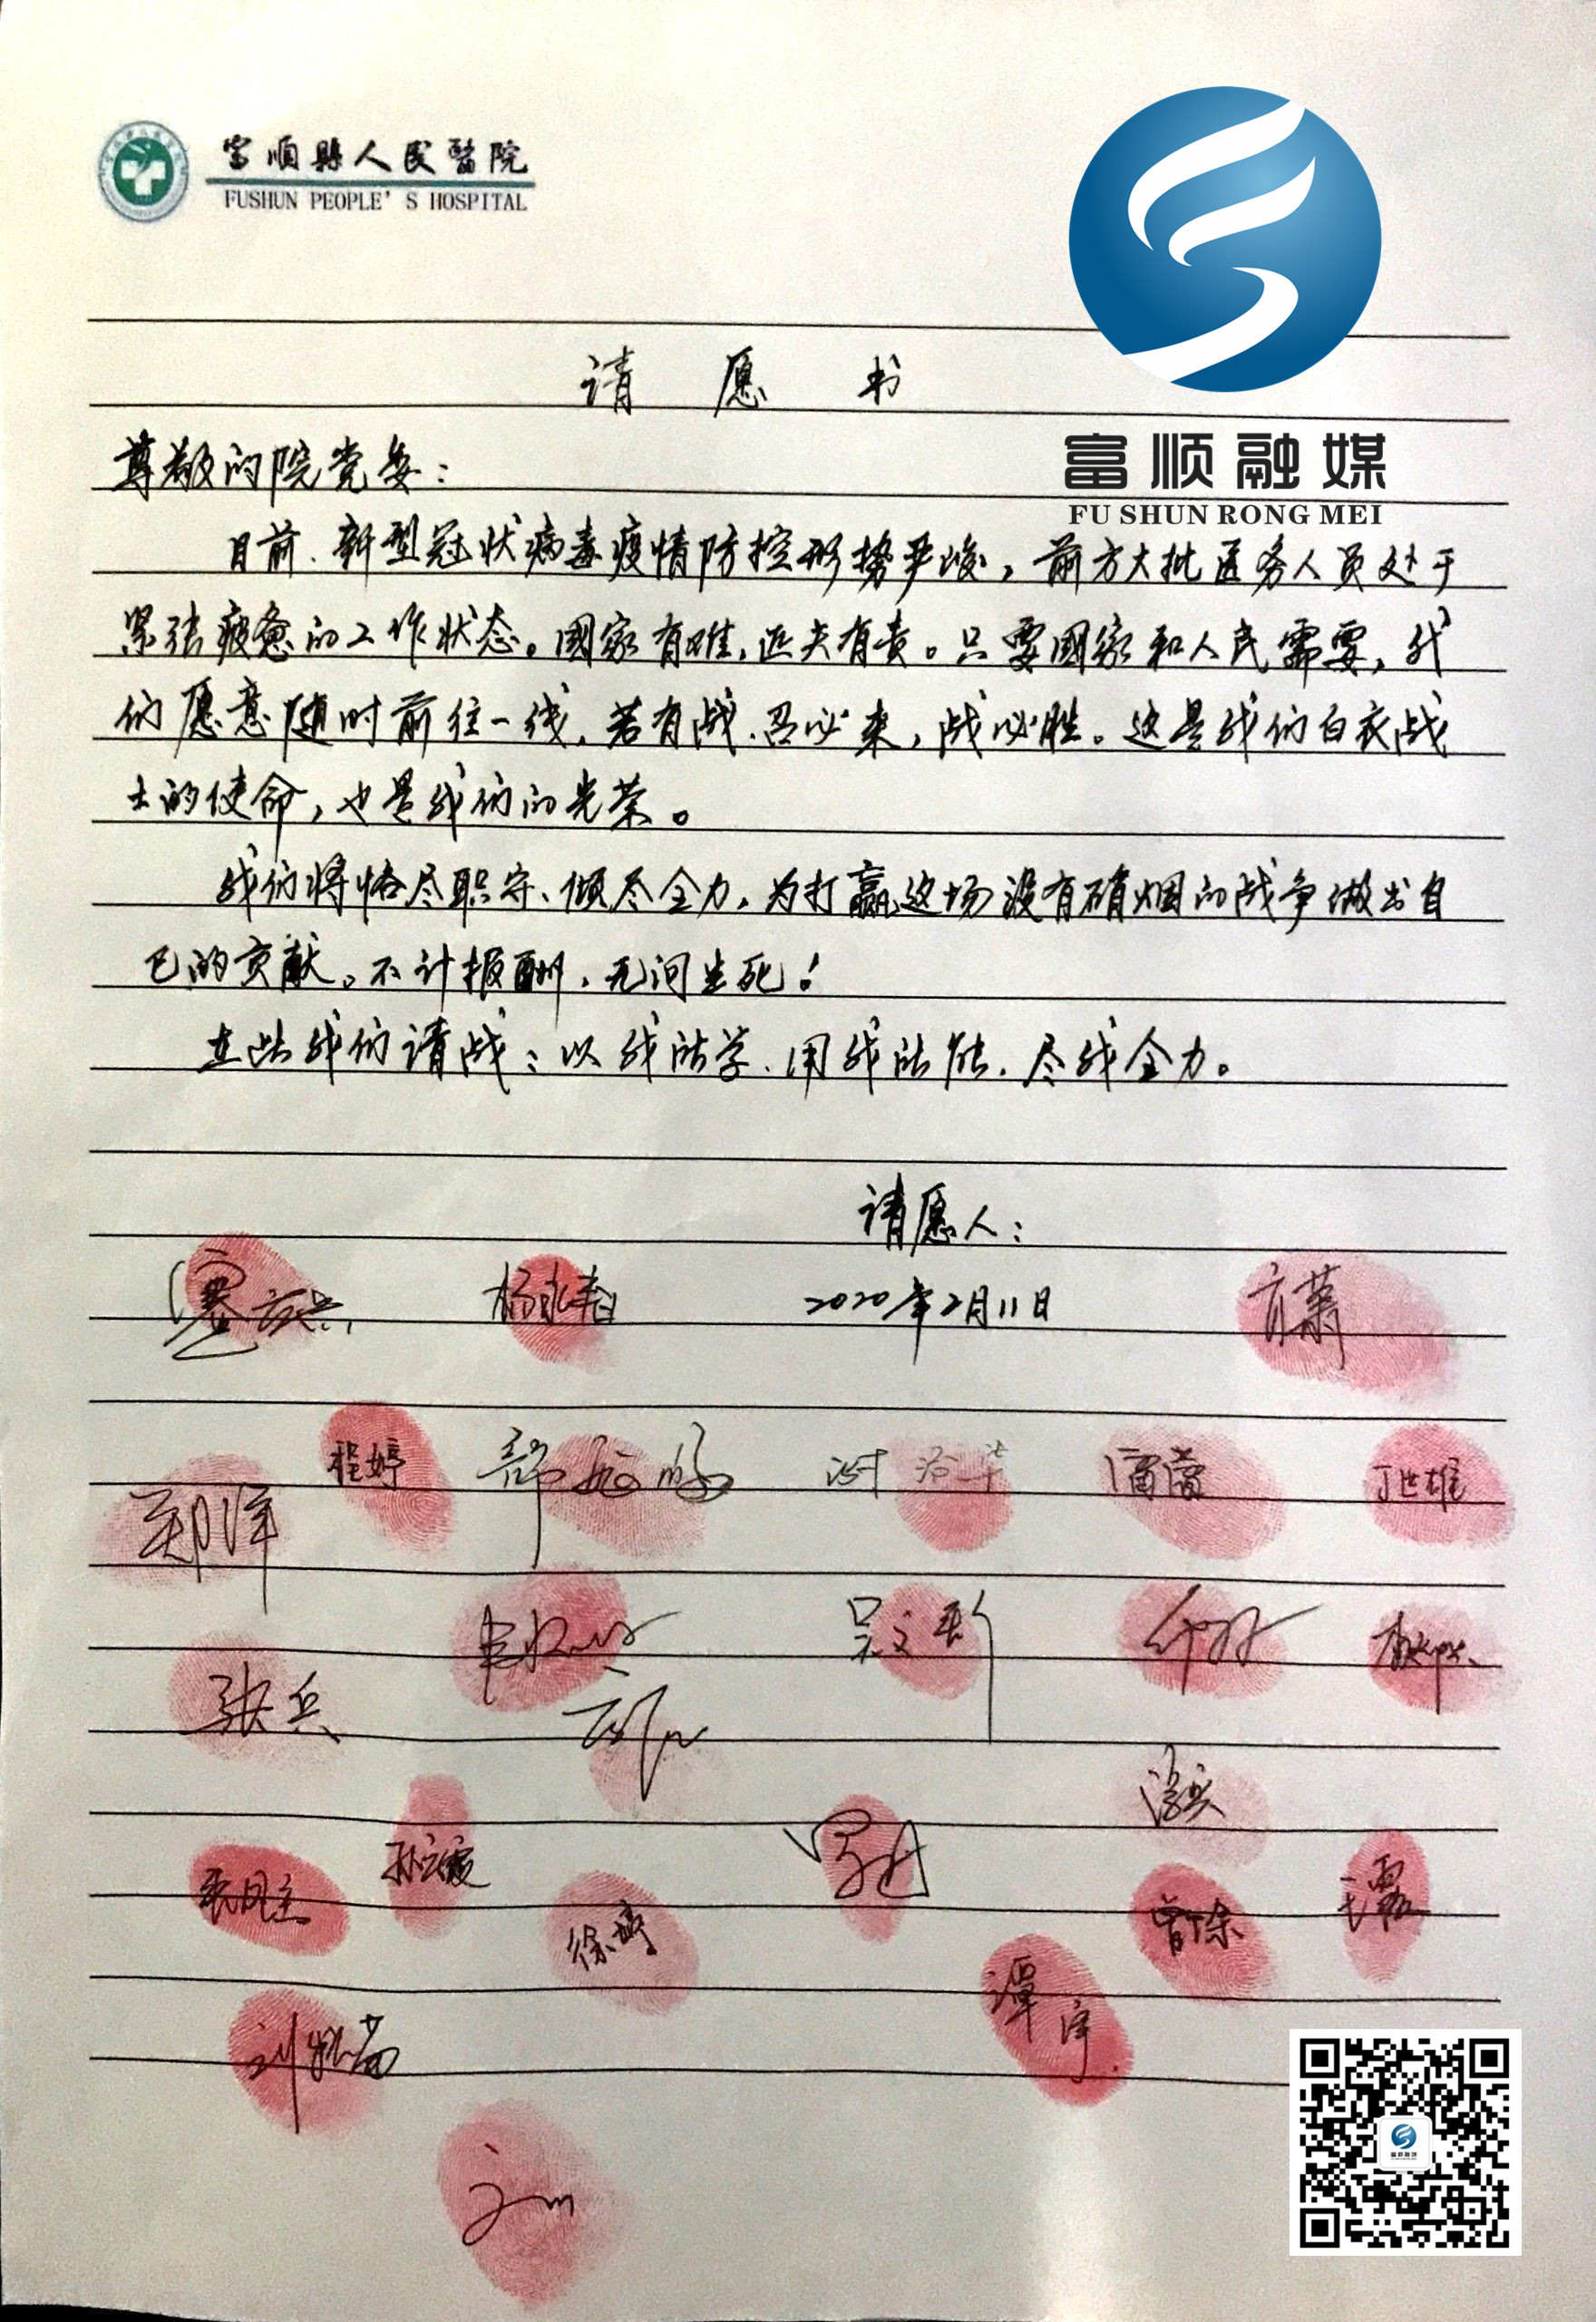 富順縣人民醫院
FUSHUN PEOPLE'S HOSPITAL
富顺融媒
FU SHUN RONG MEI
请愿书
尊敬的院党委:
目前、新型冠状病毒疫情防控形势严峻,前方大批医务人员处于
紧张疲惫的工作状态。國家有难,匹夫有责。只要國家和人民需要,我
们愿意随时前往一线,若有战、召必来,战必胜。这是我们白衣战
士的使命,也是我们的光荣。
我们将恪尽职守、倾尽全力,为打赢这场没有硝烟的战争做出自
己的贡献。不计报酬,无问生死!
在此我们请战:以我所学、用我所能、尽我全力。
请愿人:
2020年2月11日
程婷
丁世雄
郑洋
张兵
徐婷
谭宇
富顺融媒